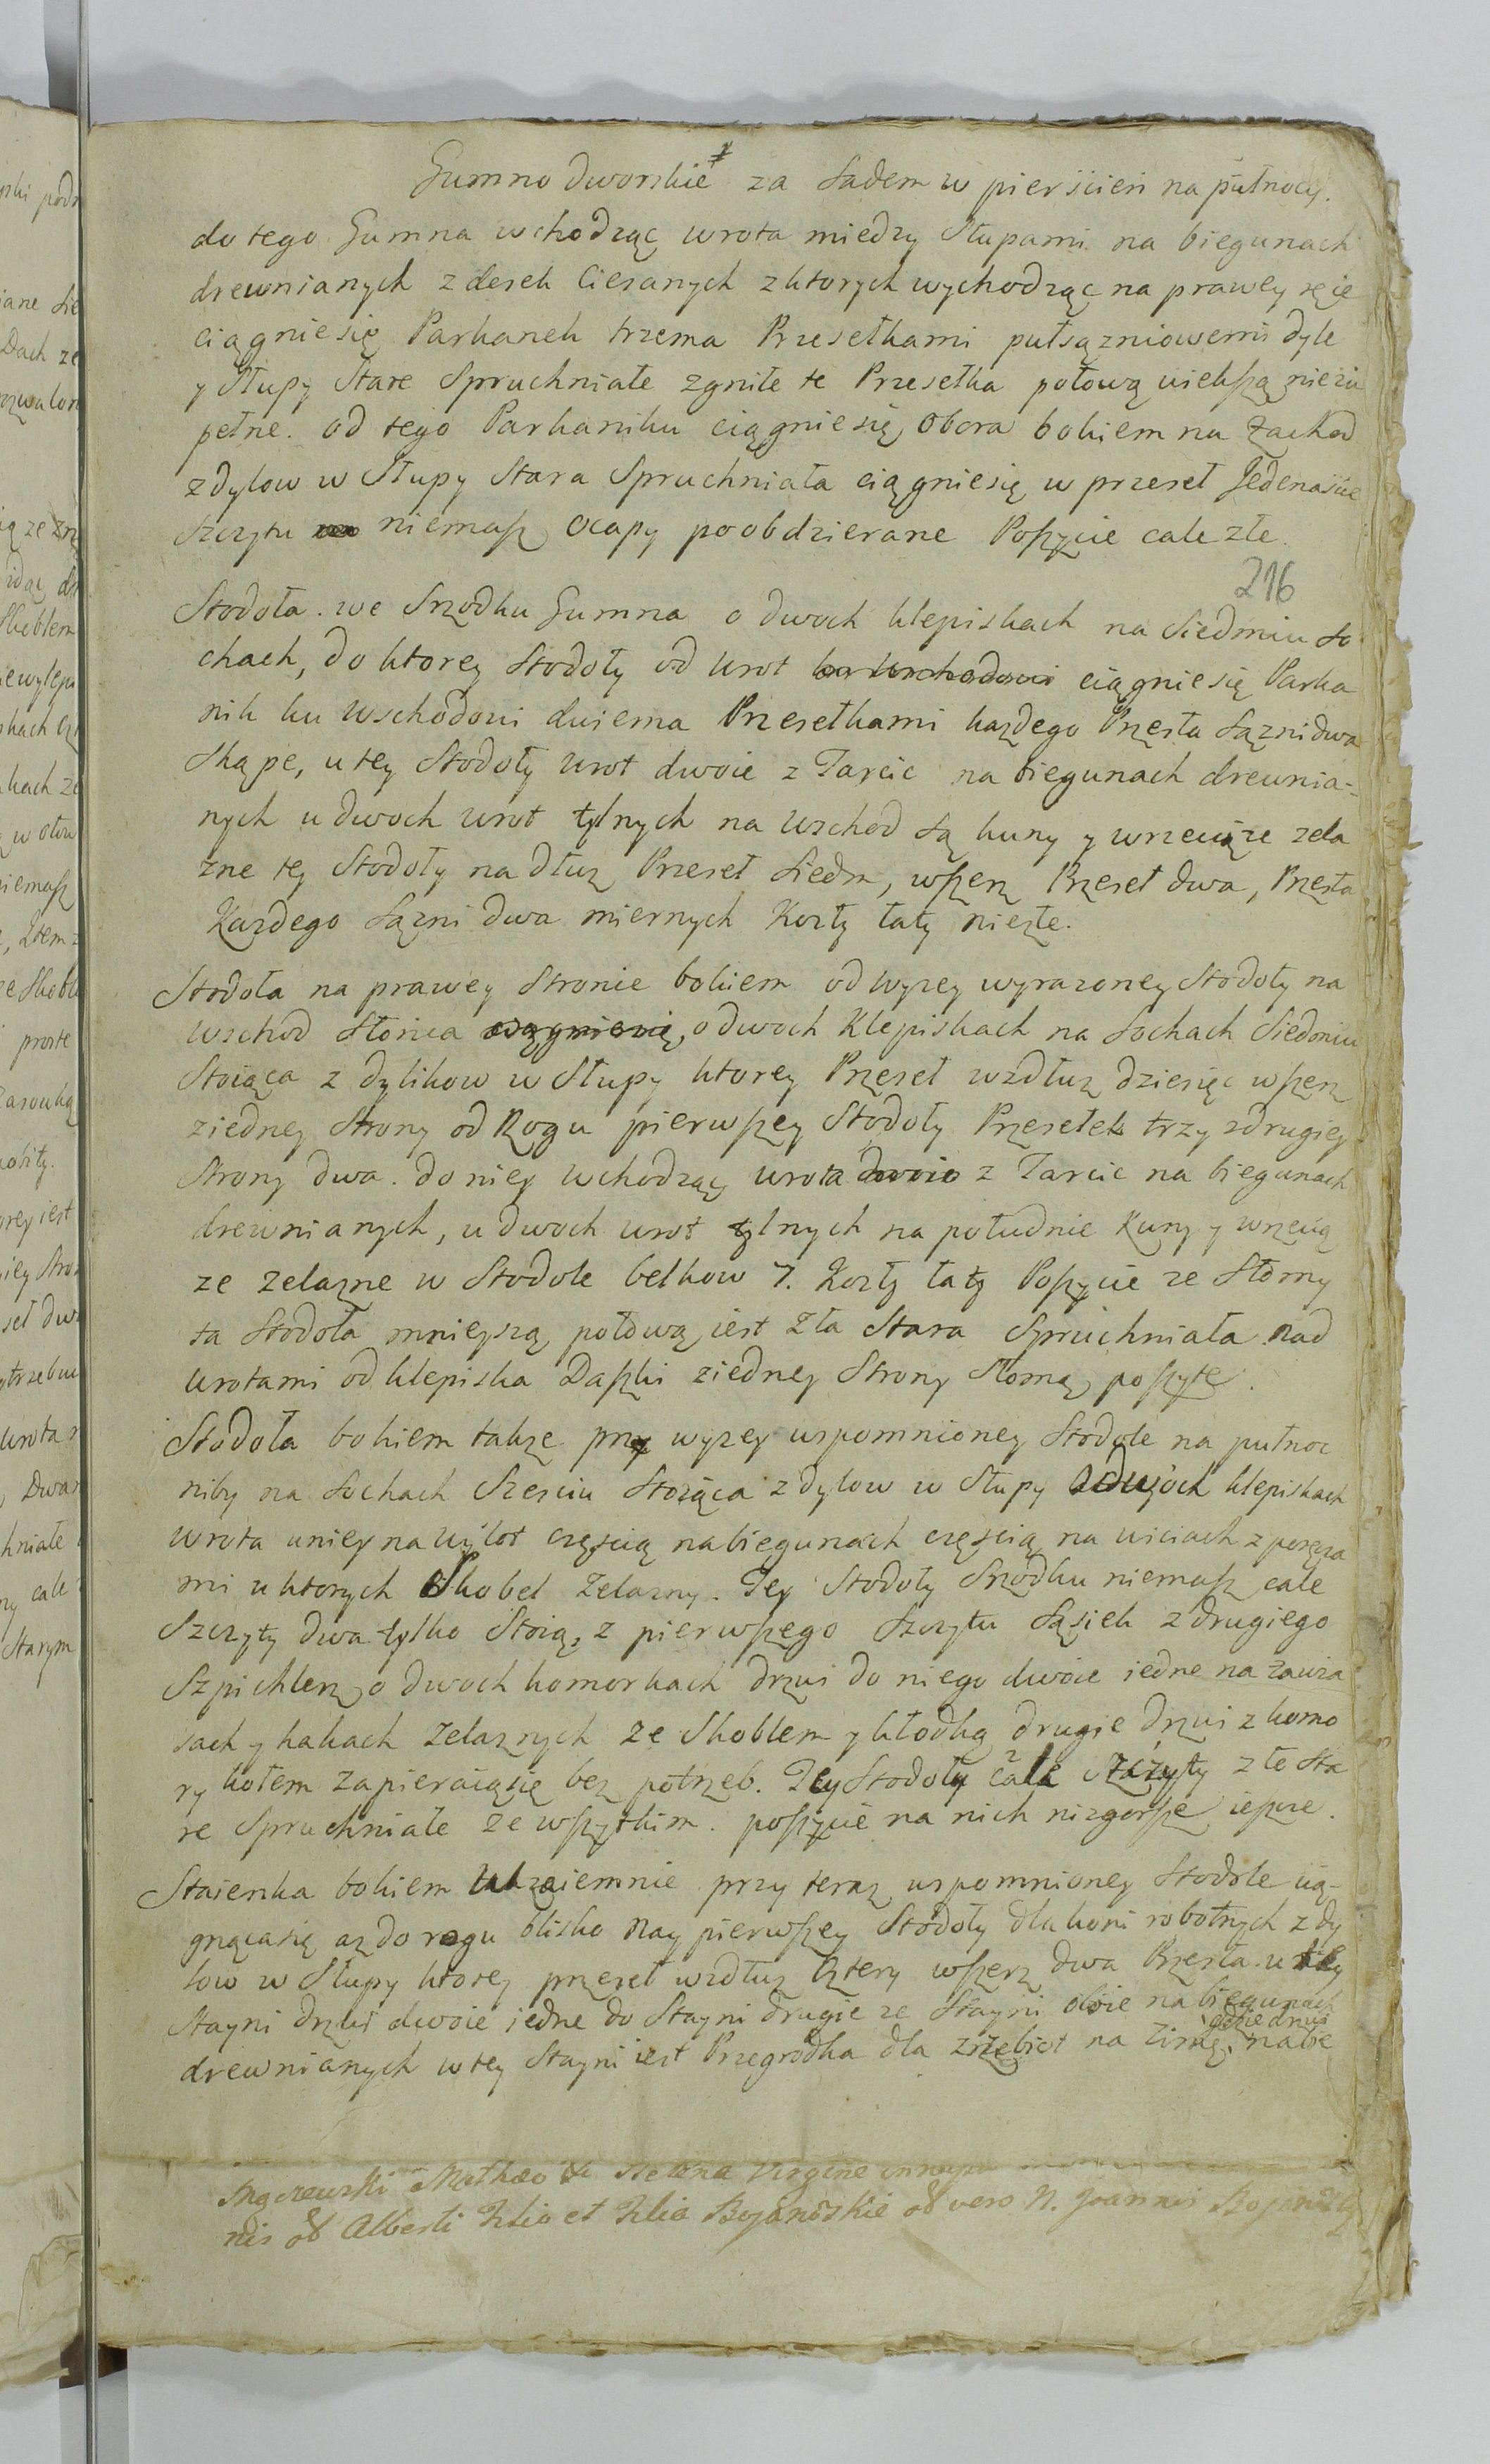 Gumno dworskie za Sadem w pierścień na pułnocy.
do tego Gumna wchodząc wrota miedzy Słupami na biegunach
drewnianych z desek Ciesanych z ktorych wychodząc na prawey ręie
ciągniesię Parkanek trzema Przesełkami pułsązniowemi dyle
y Słupy Stare Spruchniałe zgniłe te Przesełka połową wiekszą niezu
pełne. od tego Parkaniku ciągniesię Obora bokiem na Zachod
z dylow w Słupy Stara Spruchniała ciągniesię w przeseł Jedenaście
Szczytu niemasz ocapy poobdzierane Poszycie cale złe.
216
Stodoła we Srzodku Gumna o dwoch klepiskach na Siedmiu So
chach, do ktorey Stodoły od wrot ku Wschodowi ciągniesię Parka
nik ku Wschodowi dwiema Przesełkami każdego Przęsła Sązni dwa
Skąpe, u tey Stodoły wrot dwoie z Tarcic na biegunach drewnia-
nych u dwoch wrot tylnych na wschod są kuny y wrzeciąże zela
zne tey Stodoły na dłuz Przeseł Siedm, wszerz Przeseł dwa, Przęsła
Każdego Sązni dwa miernych Kozły łaty niezłe.
Stodoła na prawey Stronie bokiem od wyzey wyrazoney Stodoły na
wschod Słońca ciągniesię, o dwoch Klepiskach na Sochach Siedmiu
Stoiąca z dylikow w Słupy ktorey Przęseł wzdłuz dziesięć wszerz
ziedney Strony od Rogu pierwszey Stodoły Przesełek trzy z drugiey
Strony dwa. do niey wchodząc wrota dwoie z Tarcic na biegunach
drewnianych, u dwoch wrot tylnych na południe Kuny y wrzecią
ze zelazne w Stodole belkow 7. Kozły łaty Poszycie ze Słomy
ta Stodoła mnieyszą połową iest Zła Stara Spruchniała nad
wrotami od klepiska Daszki ziedney Strony Słomą poszyte.
Stodoła bokiem takze przy wyzey wspomnioney Stodole na pułnoc
niby na Sochach Szesciu Stoiąca z dylow w Słupy o dwoch klepiskach
wrota u niey na wylot częscią na biegunach częscią na wiciach z poręcza
mi u ktorych Skobel Zelazny. Tey Stodoły Srzodku niemasz cale
Szczyty dwa tylko Stoią, z pierwszego Szczytu Sąsiek z drugiego
Szpichlerz o dwoch komorkach drzwi do niego dwoie iedne na Zawia
sach y hakach Zelaznych ze Skoblem y kłodką drugie drzwi z komo
ry kołem zapieraiąsię bez potrzeb. Tey Stodoły cale Szczyty złe Sta
re Spruchniałe ze wszytkim. poszycie na nich nizgorsze ieszcze.
Staienka bokiem wzaiemnie przy teraz wspomnioney Stodole cią-
gnącasię az do rogu blisko Nay pierwszey Stodoły dla koni robotnych z dy
low w Słupy ktorey przeseł wzdłuz cztery wszerz dwa Przęsła. u tey
Stayni drzwi dwoie iedne do Stayni drugie ze Stayni oboie na biegunach
gdzie drzwi
drewnianych w tey Stayni iest Przegrodka dla zrzebiet na Zimę, na bie
Mathæo Helena Virgine
nis Alberti Filio et Filia vero N. Joannis